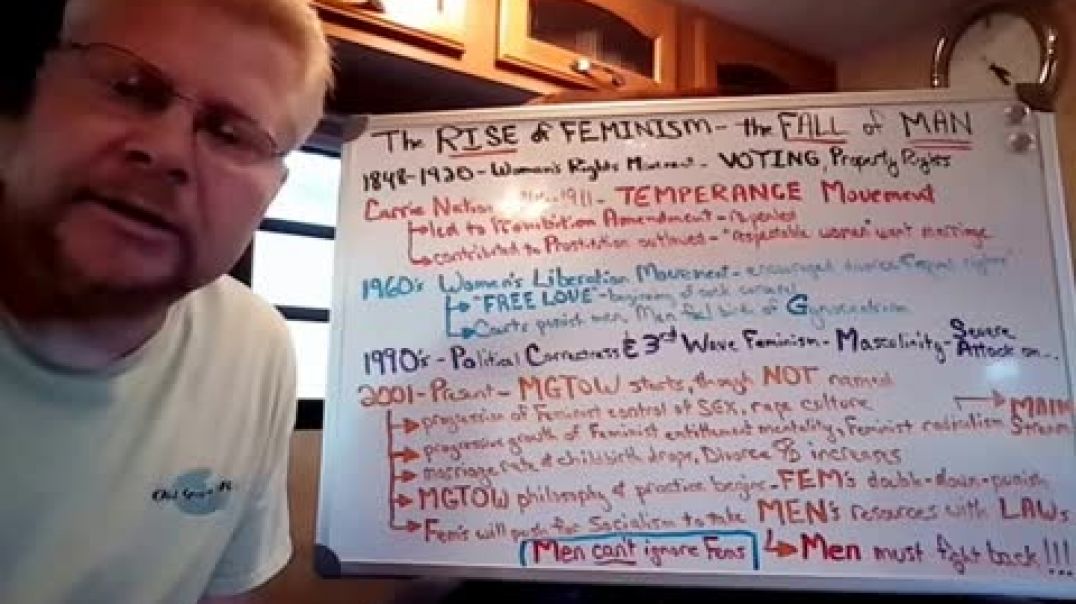 The RISE of FEMINISM - the FALL of MAN
1848-1920 - Women's Rights Movement - VOTING, Property Rights
Carrie Nation 1911 - TEMPERANCE Movement
led to Prohibition Amendment - repealed
contributed to Prostitution outlawed - "respectable women want marriage
1960's Women's Liberation Movement - encouraged divorce
"FREE LOVE" - beginning of
Courts punish men, Men feel of Gynocentrism
1990's - Political Correctness & 3rd Wave Feminism - Masculinity - Severe Attack on...
2001-Present - MGTOW starts, though NOT named
progression of Feminist control of SEX, rape culture
MAIN Stream
progressive growth of Feminist entitlement mentality, Feminist radicalism
marriage rate & childbirth drops, Divorce % increases
MGTOW philosophy & practice begins - FEM's double-down-punish
Fem's will push for Socialism to take MEN's resources with LAWs
Men can't ignore Fems
Men must fight back!!!